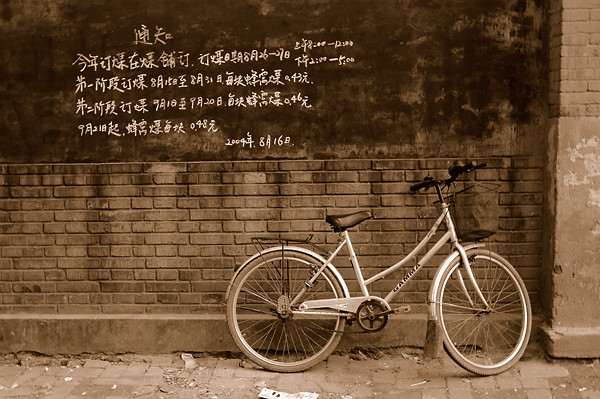 通知
今年订煤在煤铺订.订煤日期8月26—27日 上午8:00—12:00
下午2:00—5:00
第一阶段订煤8月15日至8月31日每块蜂窝煤0.43元.
第二阶段订煤9月1日至9月20日.每块蜂窝煤0.46元
9月21日起,蜂窝煤每块0.48元
2004年.8月16日